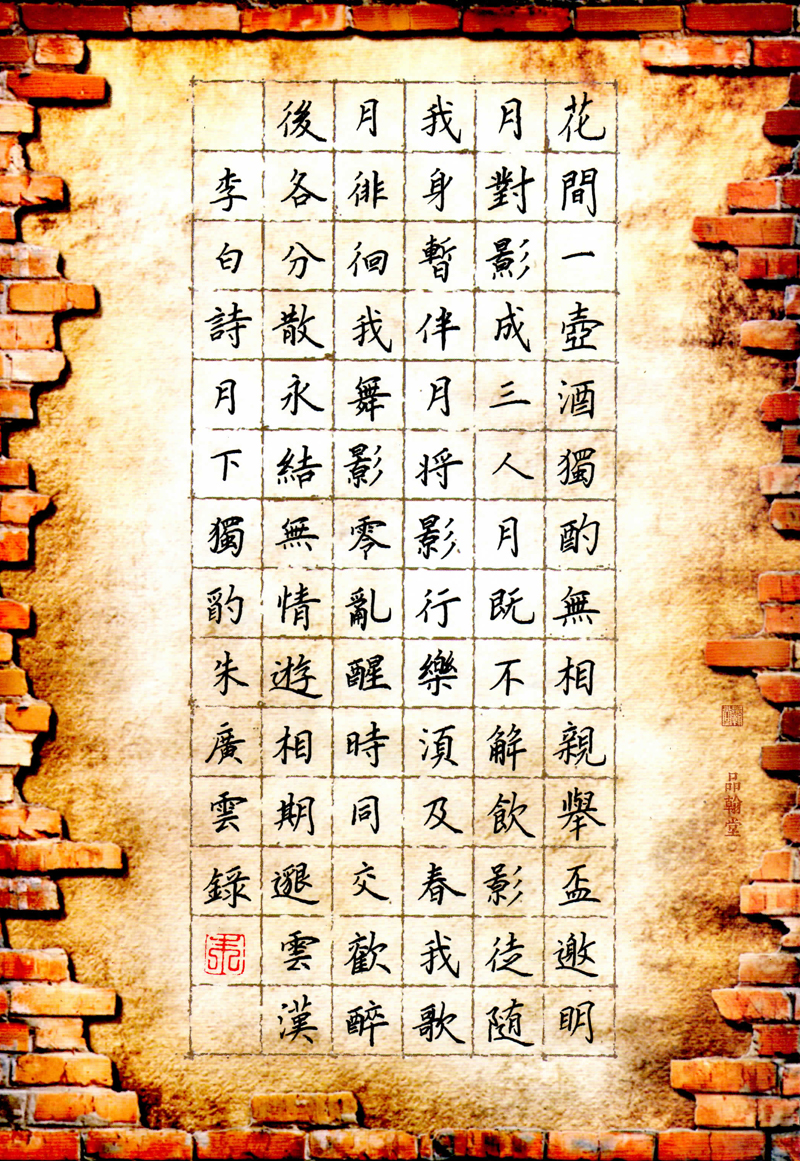 花間一壺酒獨酌無相親舉盃邀明
月對影成三人月既不解飲影徒隨
我身暫伴月将影行樂須及春我歌
月徘徊我舞影零亂醒時同交歡醉
後各分散永結無情遊相期邈雲漢
李白詩月下獨酌朱廣雲錄
朱
品翰堂